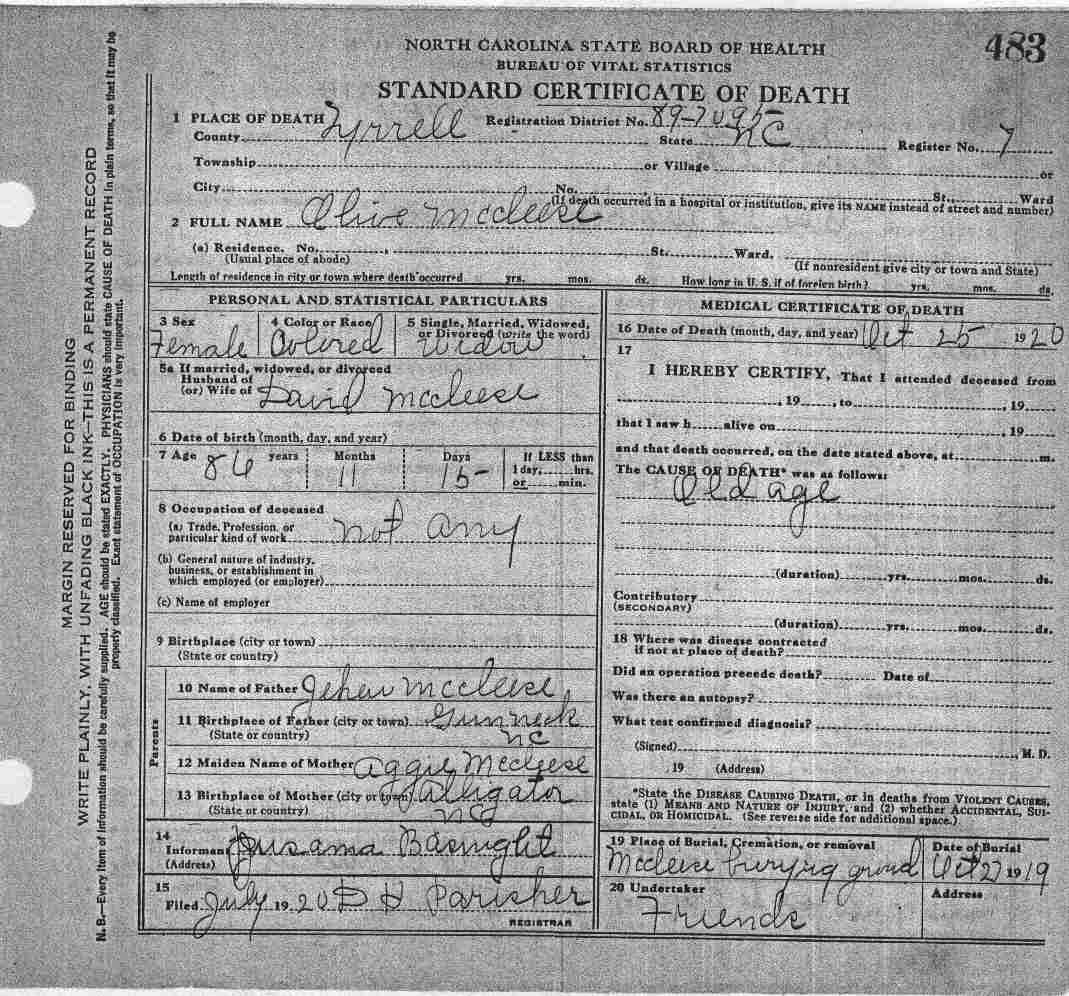 483
NORTH CAROLINA STATE BOARD OF HEALTH
BUREAU OF VITAL STATISTICS
STANDARD CERTIFICATE OF DEATH
1 PLACE OF DEATH Registration District No. 89-7095
County Tyrrell State NC Register No. 7
Township or Village or
City No. St., Ward
(If death occurred in a hospital or institution, give its NAME instead of street and number)
2 FULL NAME Olive Mccleese
(a) Residence. No. St. Ward.
(Usual place of abode) (If nonresident give city or town and State)
Length of residence in city or town where death occurred yrs. mos. ds. How long in U. S. if of foreign birth? yrs. mos. ds.
PERSONAL AND STATISTICAL PARTICULARS
3 Sex 4 Color or Race 5 Single, Married, Widowed,
or Divorced (write the word)
Female Colored Widow
5a If married, widowed, or divorced
Husband of
(or) Wife of David Mccleese
6 Date of birth (month, day, and year)
7 Age 86 years 11 Months 15 Days If LESS than
1 day, hrs.
or min.
8 Occupation of deceased
(a) Trade, Profession, or
particular kind of work not any
(b) General nature of industry,
business, or establishment in
which employed (or employer)
(c) Name of employer
9 Birthplace (city or town)
(State or country)
Parents
10 Name of Father Jehew Mccleese
11 Birthplace of Father (city or town) Gumneck
(State or country) NC
12 Maiden Name of Mother Aggie Mccleese
13 Birthplace of Mother (city or town) Alligator
(State or country) NC
14
Informant Basnight
(Address)
15
Filed July 1920 D H Parisher
REGISTRAR
MEDICAL CERTIFICATE OF DEATH
16 Date of Death (month, day, and year) Oct 25 1920
17
I HEREBY CERTIFY, That I attended deceased from
, 19 , to , 19
that I saw h alive on , 19
and that death occurred, on the date stated above, at m.
The CAUSE OF DEATH* was as follows:
Old age
(duration) yrs. mos. ds.
Contributory
(SECONDARY)
(duration) yrs. mos. ds.
18 Where was disease contracted
if not at place of death?
Did an operation precede death? Date of
Was there an autopsy?
What test confirmed diagnosis?
(Signed) , M. D.
, 19 (Address)
*State the DISEASE CAUSING DEATH, or in deaths from VIOLENT CAUSES,
state (1) MEANS AND NATURE OF INJURY, and (2) whether ACCIDENTAL, SUI-
CIDAL, OR HOMICIDAL. (See reverse side for additional space.)
19 Place of Burial, Cremation, or removal Date of Burial
Mccleese buryrg ground Oct 27 1919
20 Undertaker Address
Friends
MARGIN RESERVED FOR BINDING
WRITE PLAINLY, WITH UNFADING BLACK INK—THIS IS A PERMANENT RECORD
N. B.—Every item of information should be carefully supplied. AGE should be stated EXACTLY. PHYSICIANS should state CAUSE OF DEATH in plain terms, so that it may be
properly classified. Exact statement of OCCUPATION is very important.